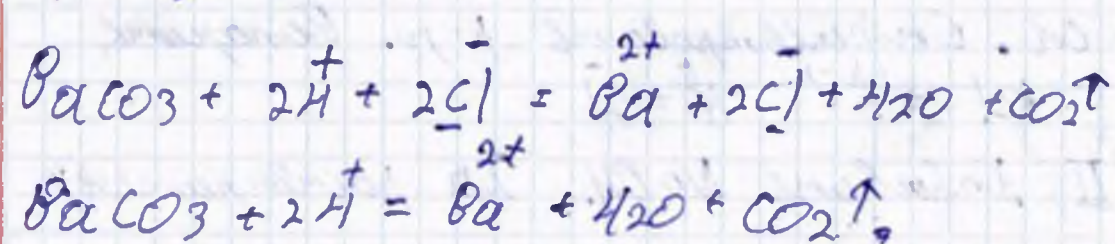 BaCO3 + 2H⁺ + 2Cl⁻ = Ba²⁺ + 2Cl⁻ + H2O + CO2↑
BaCO3 + 2H⁺ = Ba²⁺ + H2O + CO2↑.